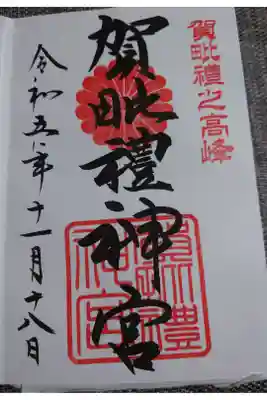 賀毗禮之高峰
賀毗禮神宮
令和五年十一月十八日